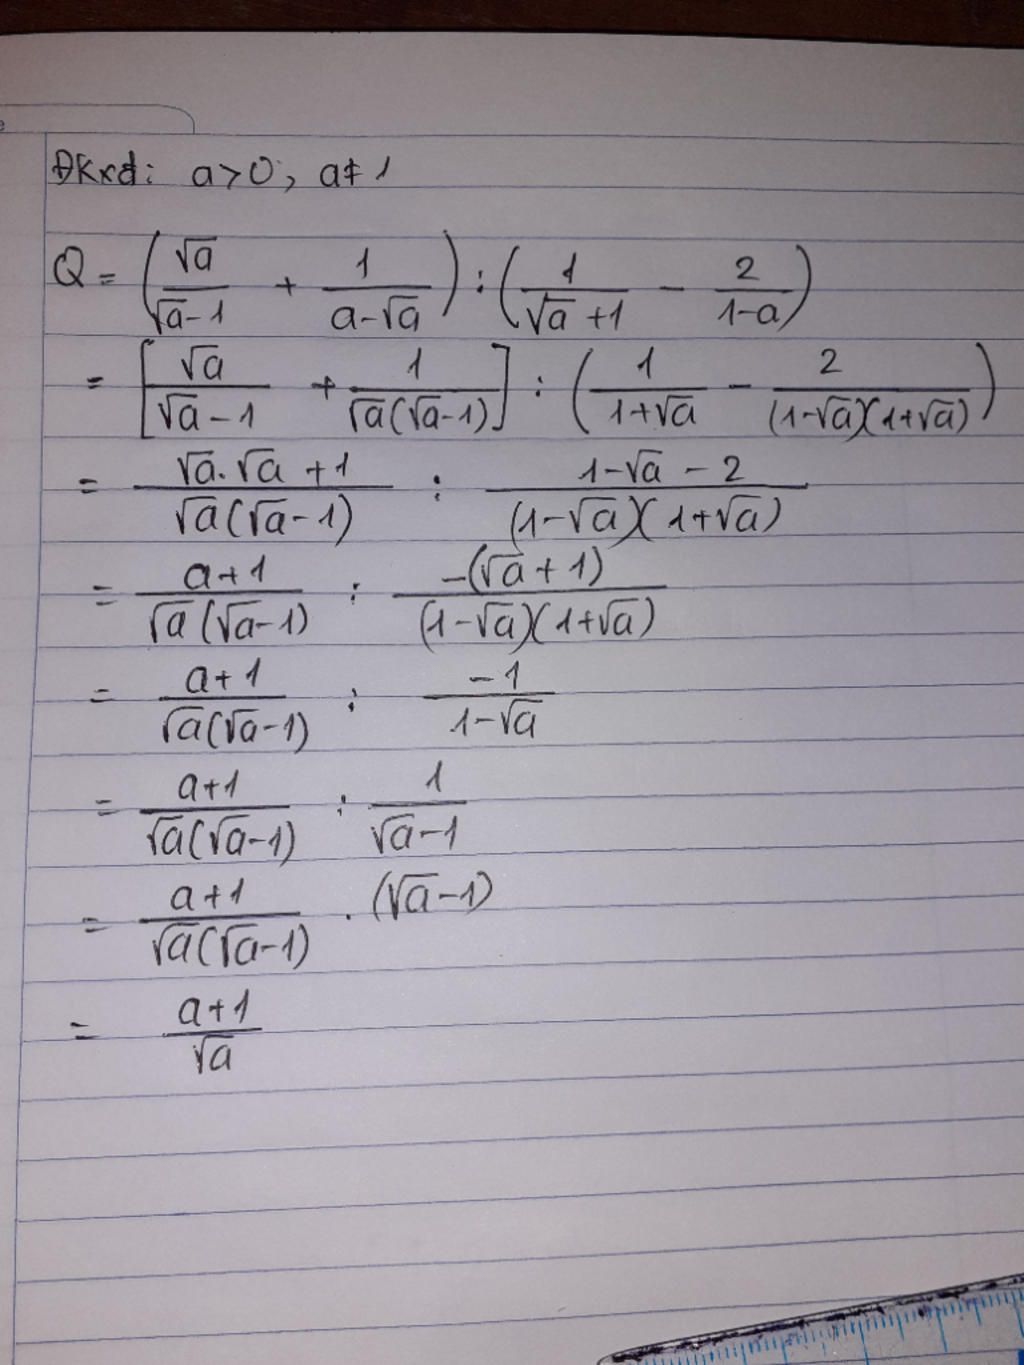 ĐKxđ: a>0; a≠1
Q = (√a/(√a-1) + 1/(a-√a)) : (1/(√a+1) - 2/(1-a))
= [√a/(√a-1) + 1/(√a(√a-1))] : (1/(1+√a) - 2/((1-√a)(1+√a)))
= (√a.√a+1)/(√a(√a-1)) : (1-√a-2)/((1-√a)(1+√a))
= (a+1)/(√a(√a-1)) : -(√a+1)/((1-√a)(1+√a))
= (a+1)/(√a(√a-1)) : -1/(1-√a)
= (a+1)/(√a(√a-1)) : 1/(√a-1)
= (a+1)/(√a(√a-1)) . (√a-1)
= (a+1)/√a